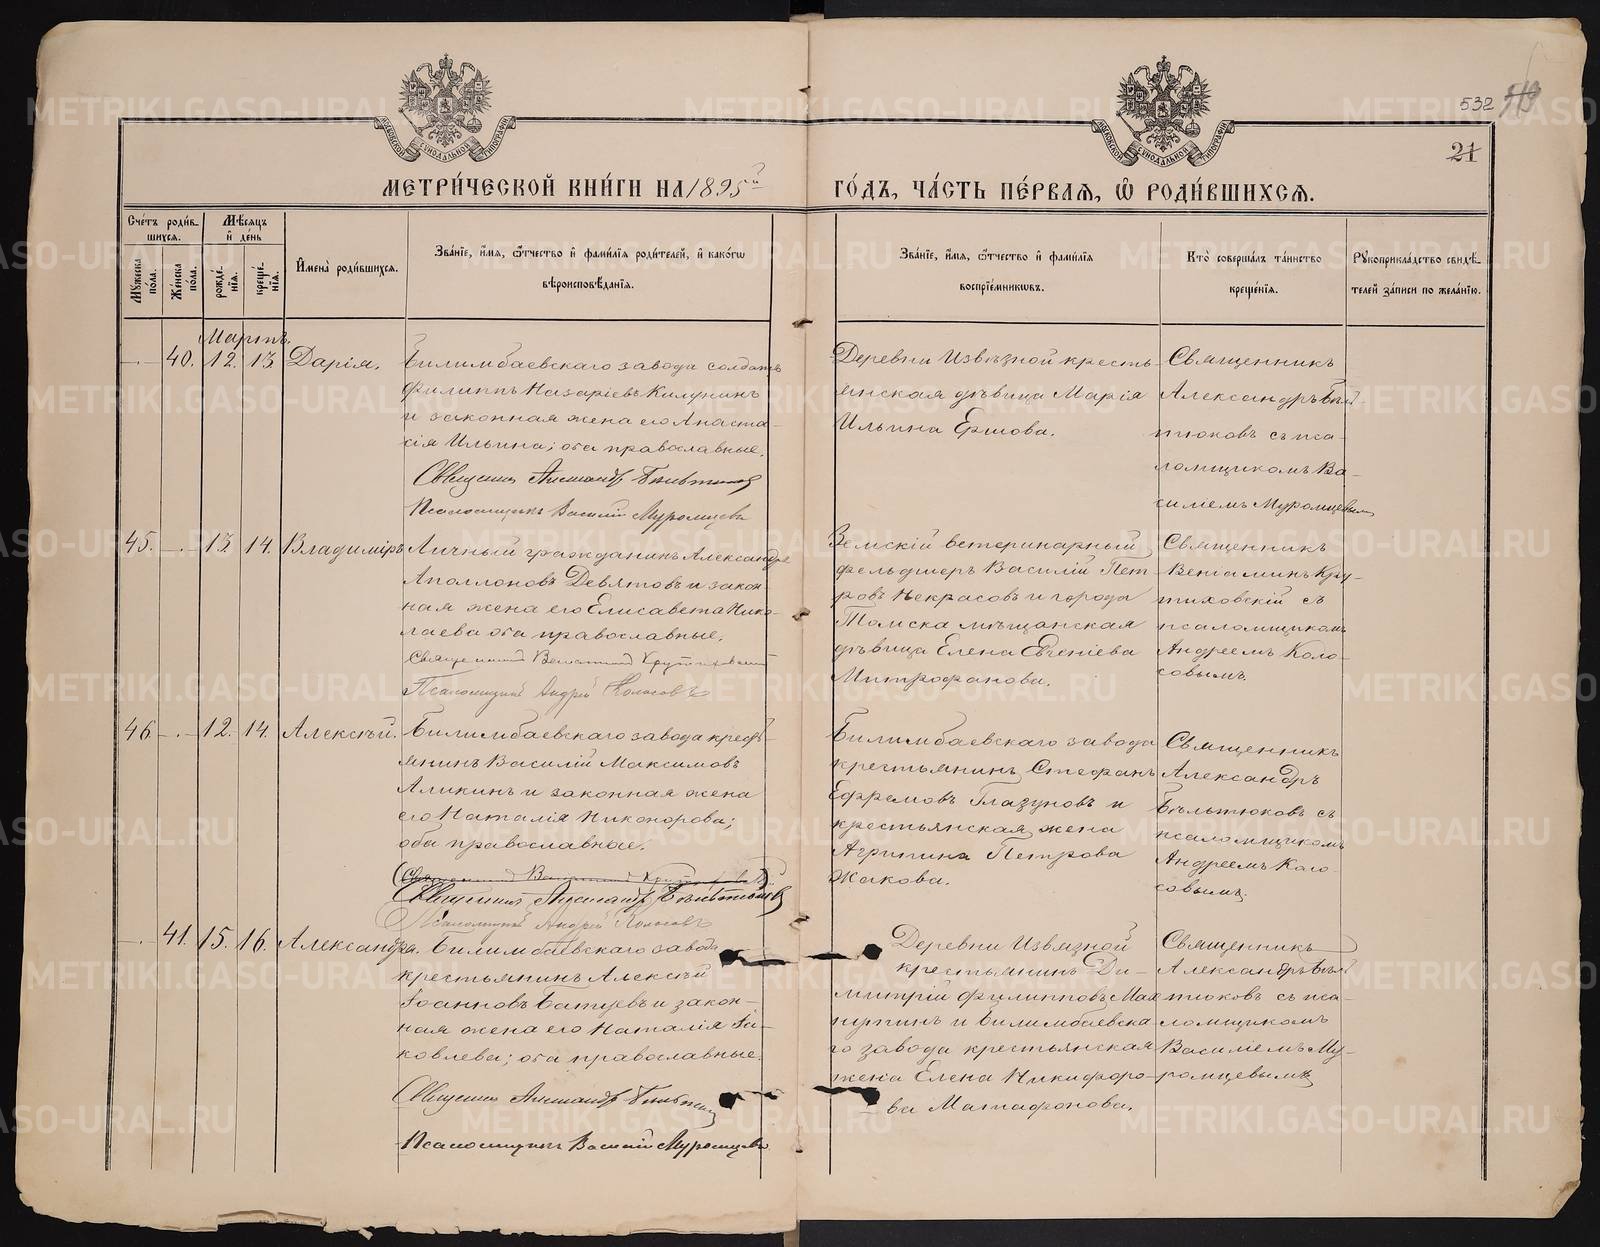 532 519
21
МОСКОВСКОЙ СѴНОДАЛЬНОЙ ТИПОГРАФІИ
МОСКОВСКОЙ СѴНОДАЛЬНОЙ ТИПОГРАФІИ
МЕТРИ́ЧЕСКОЙ КНИ́ГИ НА 1895й ГО́ДЪ, ЧА́СТЬ ПЕ́РВАѦ, Ѡ҆ РОДИ́ВШИХСѦ.
Сче́тъ роди́в-
шихся.
Мѣ́сяцъ
и҆ де́нь
Мꙋ́жеска по́ла.
Же́нска по́ла.
рожде́нїя.
креще́нїя.
И҆мена̀ роди́вшихся.
Зва́нїе, и҆́мя, ѻ҆́тчество и҆ фами́лїя роди́телей, и҆ како́гѡ
вѣроисповѣ́данїя.
Зва́нїе, и҆́мя, ѻ҆́тчество и҆ фами́лїя
воспрїе́мникѡвъ.
Кто̀ соверша́лъ та́инство
креще́нїя.
Рꙋкоприкла́дство свидѣ́-
телей за́писи по жела́нїю.
Мартъ.
40. 12. 13. Дарія.
Билимбаевскаго завода солдатъ
Филиппъ Назаріевъ Килунинъ
и законная жена его Анаста-
сія Ильина; оба православные.
Священникъ Александръ Бѣльтюковъ
Псаломщикъ Василій Муромцевъ
Деревни Извѣзной кресть-
янская дѣвица Марія
Ильина Ершова.
Священникъ
Александръ Бѣль-
тюковъ съ пса-
ломщикомъ Ва-
силіемъ Муромцевымъ
45. 13. 14. Владиміръ
Личный гражданинъ Александръ
Аполлоновъ Девятовъ и закон-
ная жена его Елисавета Нико-
лаева оба православные.
Священникъ Веніаминъ Крутиховскій
Псаломщикъ Андрей Колосовъ
Земскій ветеринарный
фельдшеръ Василій Пет-
ровъ Некрасовъ и города
Томска мѣщанская
дѣвица Елена Евгеніева
Митрофанова.
Священникъ
Веніаминъ Кру-
тиховскій съ
псаломщикомъ
Андреемъ Коло-
совымъ.
46. 12. 14. Алексѣй.
Билимбаевскаго завода кресть-
янинъ Василій Максимовъ
Аликинъ и законная жена
его Наталія Никонорова;
оба православные.
Священникъ Веніаминъ Крутиховскій
Священникъ Александръ Бѣльтюковъ
Псаломщикъ Андрей Колосовъ
Билимбаевскаго завода
крестьянинъ Стефанъ
Ефремовъ Глазуновъ и
крестьянская жена
Агрипина Петрова
Жакова.
Священникъ
Александръ
Бѣльтюковъ съ
псаломщикомъ
Андреемъ Коло-
совымъ.
41. 15. 16. Александра.
Билимбаевскаго завода
крестьянинъ Алексѣй
Іоанновъ Батуевъ и закон-
ная жена его Наталія Іа-
ковлева; оба православные.
Священникъ Александръ Бѣльтюковъ
Псаломщикъ Василій Муромцевъ
Деревни Извязной
крестьянинъ Ди-
митрій Филипповъ Мах-
нуткинъ и Билимбаевска-
го завода крестьянская
жена Елена Никифоро-
ва Матафонова.
Священникъ
Александръ Бѣль-
тюковъ съ пса-
ломщикомъ
Василіемъ Му-
ромцевымъ
METRIKI.GASO-URAL.RU